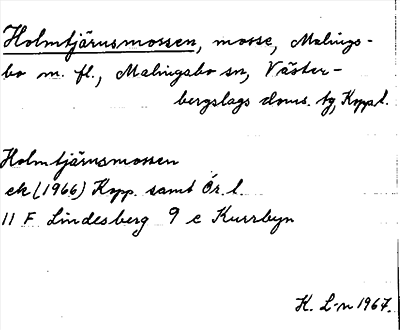 Holmtjärnsmossen, mosse, Malings-
bo m. fl., Malingsbo sn, Väster-
bergslags doms. tg, Kopp. l.
Holmtjärnsmossen
ek (1966) Kopp. samt Ör. l.
11 F Lindesberg 9 c Kurrbyn
K. L-n 1967.